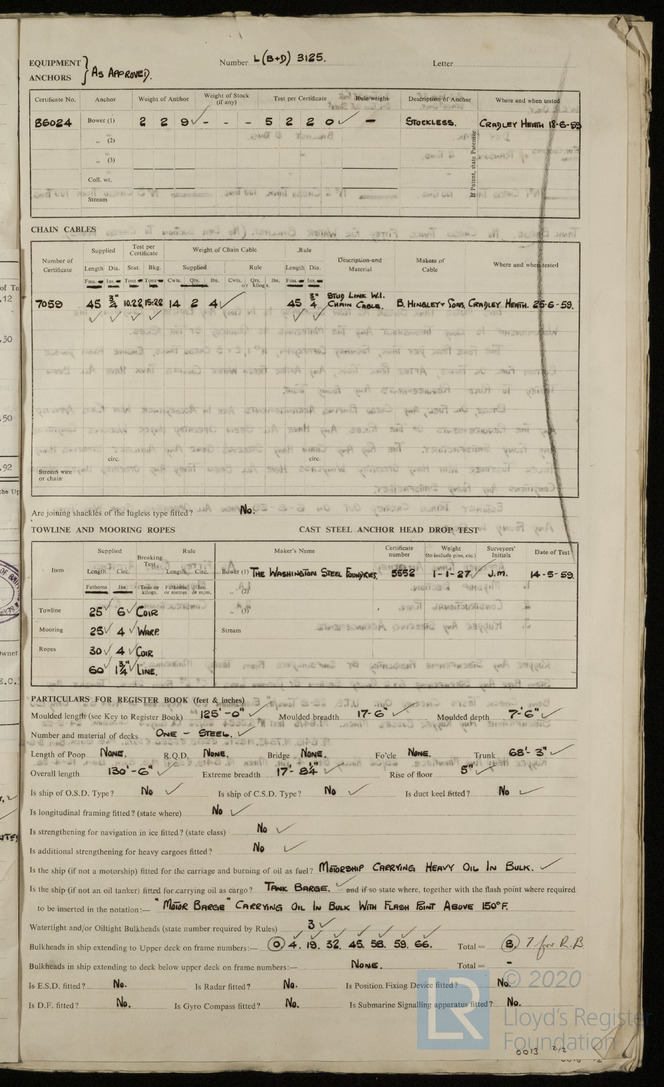 EQUIPMENT } Number L(B+D) 3125. Letter
ANCHORS } As APPROVED.
Certificate No. Anchor Weight of Anchor Weight of Stock (if any) Test per Certificate Rule weight Description of Anchor Where and when tested
86024 Bower (1) 2 2 9 ✓ - - - 5 2 2 0 ✓ - STOCKLESS. CRADLEY HEATH 18-6-59
„ (2)
„ (3)
Coll. wt.
Stream
If Patent, state Patentee
CHAIN CABLES
Number of Certificate Supplied Test per Certificate Weight of Chain Cable Rule Description and Material Makers of Cable Where and when tested
Length Dia. Stat. Bkg. Supplied Rule Length Dia.
Fms. Ins. Tons Tons Cwts. Qrs. lbs. Cwts. or kilogs. Fms. Ins.
7059 45 3/4" 10.22 15.22 14 2 4 ✓ 45 3/4" STUD LINK W.I. CHAIN CABLE. B. HINGLEY & SONS, CRADLEY HEATH. 25-6-59.
circ. circ.
Stream wire or chain
Are joining shackles of the lugless type fitted? No.
TOWLINE AND MOORING ROPES CAST STEEL ANCHOR HEAD DROP TEST
Item Supplied Breaking Test Rule Maker's Name Certificate number Weight (to include pins, etc.) Surveyors' Initials Date of Test
Length Circ. Length Circ.
Fathoms Ins. Tons or kilogs. Fathoms or metres Ins. or m/m.
Bower (1) THE WASHINGTON STEEL FOUNDRIES 5552 1-1-27 ✓ J.M. 14-5-59.
„ (2)
„ (3)
Towline 25 ✓ 6 ✓ COIR
Mooring 25 ✓ 4 ✓ WARP. Stream
Ropes 30 ✓ 4 ✓ COIR
60 1 3/4" LINE.
PARTICULARS FOR REGISTER BOOK (feet & inches)
Moulded length (see Key to Register Book) 125'-0" ✓ Moulded breadth 17'-6" ✓ Moulded depth 7'-6" ✓
Number and material of decks ONE - STEEL. ✓
Length of Poop NONE. R.Q.D. NONE. Bridge NONE. Fo'cle NONE. Trunk 68'-3" ✓
Overall length 130'-6" ✓ Extreme breadth 17'-8½" ✓ Rise of floor 5" ✓
Is ship of O.S.D. Type? No ✓ Is ship of C.S.D. Type? No ✓ Is duct keel fitted? No ✓
Is longitudinal framing fitted? (state where) No ✓
Is strengthening for navigation in ice fitted? (state class) No ✓
Is additional strengthening for heavy cargoes fitted? No ✓
Is the ship (if not a motorship) fitted for the carriage and burning of oil as fuel? MOTORSHIP CARRYING HEAVY OIL IN BULK. ✓
Is the ship (if not an oil tanker) fitted for carrying oil as cargo? TANK BARGE. and if so state where, together with the flash point where required
to be inserted in the notation:— "MOTOR BARGE" CARRYING OIL IN BULK WITH FLASH POINT ABOVE 150°F.
Watertight and/or Oiltight Bulkheads (state number required by Rules) 3 ✓
Bulkheads in ship extending to Upper deck on frame numbers:— 0 4. 19. 32. 45. 58. 59. 66. Total = 8. 7 for R.B
Bulkheads in ship extending to deck below upper deck on frame numbers:— NONE. Total = -
Is E.S.D. fitted? No. Is Radar fitted? No. Is Position Fixing Device fitted? No.
Is D.F. fitted? No. Is Gyro Compass fitted? No. Is Submarine Signalling apparatus fitted? No.
LR © 2020
Lloyd's Register
Foundation
0013